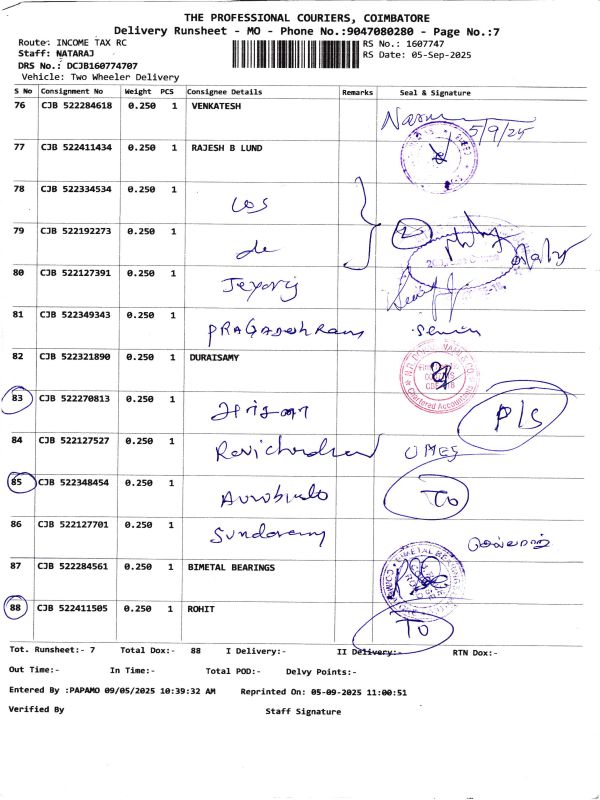 THE PROFESSIONAL COURIERS, COIMBATORE
Delivery Runsheet - MO - Phone No.:9047080280 - Page No.:7
Route: INCOME TAX RC RS No.: 1607747
Staff: NATARAJ RS Date: 05-Sep-2025
DRS No.: DCJB160774707
Vehicle: Two Wheeler Delivery
S No Consignment No Weight PCS Consignee Details Remarks Seal & Signature
76 CJB 522284618 0.250 1 VENKATESH
5/9/25
77 CJB 522411434 0.250 1 RAJESH B LUND
78 CJB 522334534 0.250 1
79 CJB 522192273 0.250 1 de
80 CJB 522127391 0.250 1 Jeyaraj
81 CJB 522349343 0.250 1 PRAGADESH Ram
82 CJB 522321890 0.250 1 DURAISAMY
Chartered Accountants
83 CJB 522270813 0.250 1 P/S
84 CJB 522127527 0.250 1 Ravichandran
85 CJB 522348454 0.250 1 Aurobindo TO
86 CJB 522127701 0.250 1 Sundaramy
87 CJB 522284561 0.250 1 BIMETAL BEARINGS
88 CJB 522411505 0.250 1 ROHIT TO
Tot. Runsheet:- 7 Total Dox:- 88 I Delivery:- II Delivery:- RTN Dox:-
Out Time:- In Time:- Total POD:- Delvy Points:-
Entered By :PAPAMO 09/05/2025 10:39:32 AM Reprinted On: 05-09-2025 11:00:51
Verified By Staff Signature